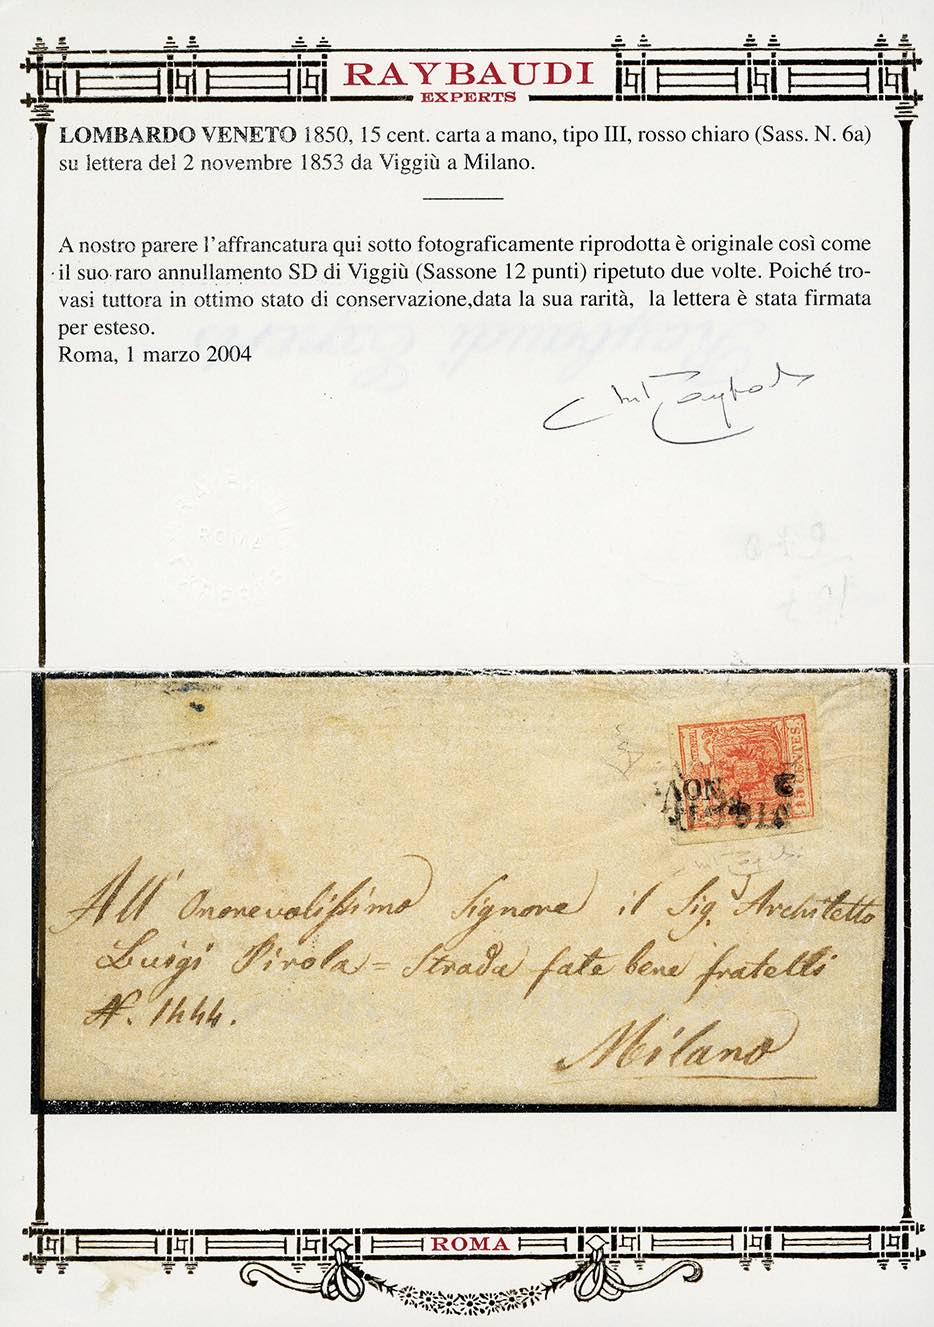 RAYBAUDI
EXPERTS
LOMBARDO VENETO 1850, 15 cent. carta a mano, tipo III, rosso chiaro (Sass. N. 6a)
su lettera del 2 novembre 1853 da Viggiù a Milano.
A nostro parere l'affrancatura qui sotto fotograficamente riprodotta è originale così come
il suo raro annullamento SD di Viggiù (Sassone 12 punti) ripetuto due volte. Poiché tro-
vasi tuttora in ottimo stato di conservazione,data la sua rarità, la lettera è stata firmata
per esteso.
Roma, 1 marzo 2004
ROMA
15 CENTES.
NOV
All' Onorevolissimo Signore il Sig. Architetto
Luigi Pirola = Strada fate bene fratelli
N. 1444.
Milano
ROMA